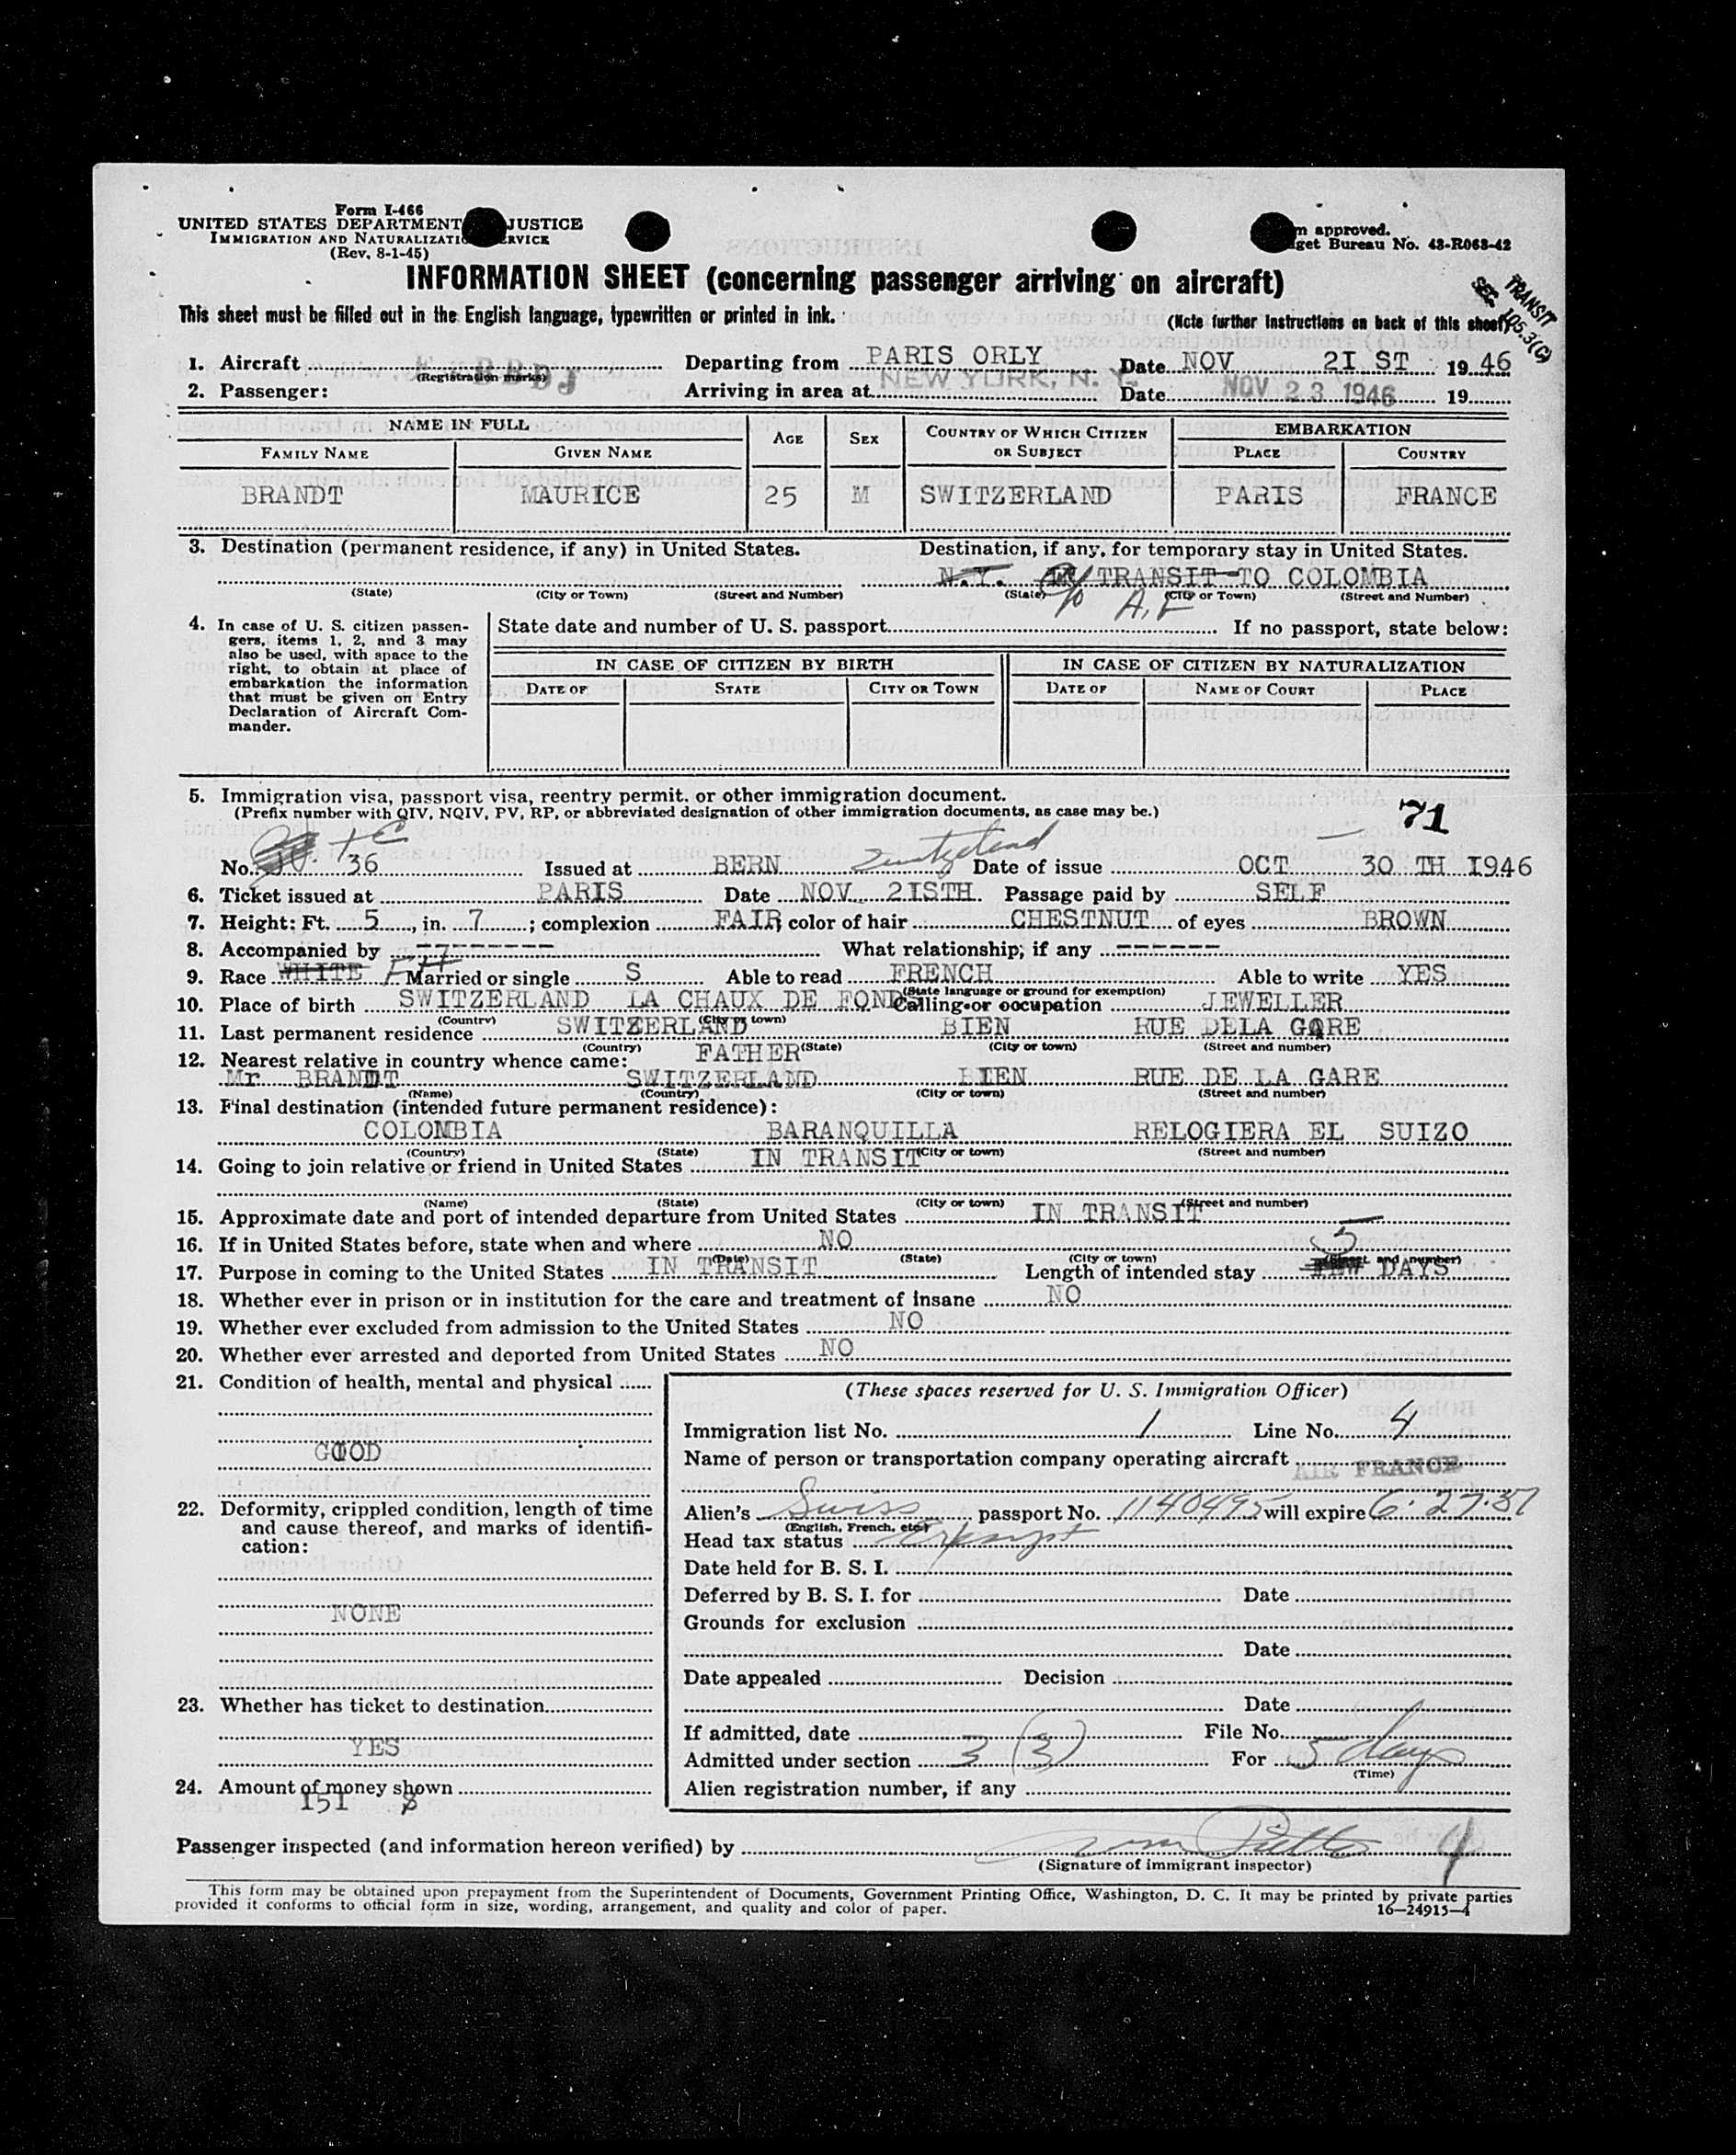 Form I-466
UNITED STATES DEPARTMENT JUSTICE
IMMIGRATION AND NATURALIZATION SERVICE
(Rev. 8-1-45)
approved.
Bureau No. 43-R063-42
INFORMATION SHEET (concerning passenger arriving on aircraft)
TRANSIT
SEC. 105.3(C)
This sheet must be filled out in the English language, typewritten or printed in ink. (Note further instructions on back of this sheet)
1. Aircraft BBDJ Departing from PARIS ORLY Date NOV 2I ST 1946
(Registration marks)
2. Passenger: Arriving in area at NEW YORK, N. Y. Date NOV 23 1946 19
NAME IN FULL AGE SEX COUNTRY OF WHICH CITIZEN OR SUBJECT EMBARKATION
FAMILY NAME GIVEN NAME PLACE COUNTRY
BRANDT MAURICE 25 M SWITZERLAND PARIS FRANCE
3. Destination (permanent residence, if any) in United States. Destination, if any, for temporary stay in United States.
N.Y. TRANSIT TO COLOMBIA
(State) (City or Town) (Street and Number) (State) (City or Town) (Street and Number)
4. In case of U. S. citizen passen-
gers, items 1, 2, and 3 may
also be used, with space to the
right, to obtain at place of
embarkation the information
that must be given on Entry
Declaration of Aircraft Com-
mander.
State date and number of U. S. passport If no passport, state below:
IN CASE OF CITIZEN BY BIRTH IN CASE OF CITIZEN BY NATURALIZATION
DATE OF STATE CITY OR TOWN DATE OF NAME OF COURT PLACE
5. Immigration visa, passport visa, reentry permit, or other immigration document.
(Prefix number with QIV, NQIV, PV, RP, or abbreviated designation of other immigration documents, as case may be.)
71
No. 36 Issued at BERN Switzerland Date of issue OCT 30 TH I946
6. Ticket issued at PARIS Date NOV 2ISTH Passage paid by SELF
7. Height: Ft. 5, in. 7; complexion FAIR, color of hair CHESTNUT of eyes BROWN
8. Accompanied by --------- What relationship, if any ------
9. Race WHITE Married or single S Able to read FRENCH Able to write YES
(State language or ground for exemption)
10. Place of birth SWITZERLAND LA CHAUX DE FONDS Calling or occupation JEWELLER
(Country) (City or town)
11. Last permanent residence SWITZERLAND BIEN RUE DELA GARE
(Country) (State) (City or town) (Street and number)
12. Nearest relative in country whence came: FATHER
Mr BRANDT SWITZERLAND BIEN RUE DE LA GARE
(Name) (Country) (City or town) (Street and number)
13. Final destination (intended future permanent residence):
COLOMBIA BARANQUILLA RELOGIERA EL SUIZO
(Country) (State) (City or town) (Street and number)
14. Going to join relative or friend in United States IN TRANSIT
(Name) (State) (City or town) (Street and number)
15. Approximate date and port of intended departure from United States IN TRANSIT
16. If in United States before, state when and where NO
(Date) (State) (City or town) (Street and number)
17. Purpose in coming to the United States IN TRANSIT Length of intended stay 5 DAYS
18. Whether ever in prison or in institution for the care and treatment of insane NO
19. Whether ever excluded from admission to the United States NO
20. Whether ever arrested and deported from United States NO
21. Condition of health, mental and physical
GOOD
22. Deformity, crippled condition, length of time
and cause thereof, and marks of identifi-
cation:
NONE
23. Whether has ticket to destination
YES
24. Amount of money shown
I5I $
(These spaces reserved for U. S. Immigration Officer)
Immigration list No. 1 Line No. 4
Name of person or transportation company operating aircraft AIR FRANCE
Alien's Swiss passport No. 1140495 will expire 6.27.51
(English, French, etc.)
Head tax status Exempt
Date held for B. S. I.
Deferred by B. S. I. for Date
Grounds for exclusion
Date
Date appealed Decision
Date
If admitted, date File No.
Admitted under section 3 (3) For 5 days
(Time)
Alien registration number, if any
Passenger inspected (and information hereon verified) by
(Signature of immigrant inspector)
This form may be obtained upon prepayment from the Superintendent of Documents, Government Printing Office, Washington, D. C. It may be printed by private parties
provided it conforms to official form in size, wording, arrangement, and quality and color of paper. 16—24915-4